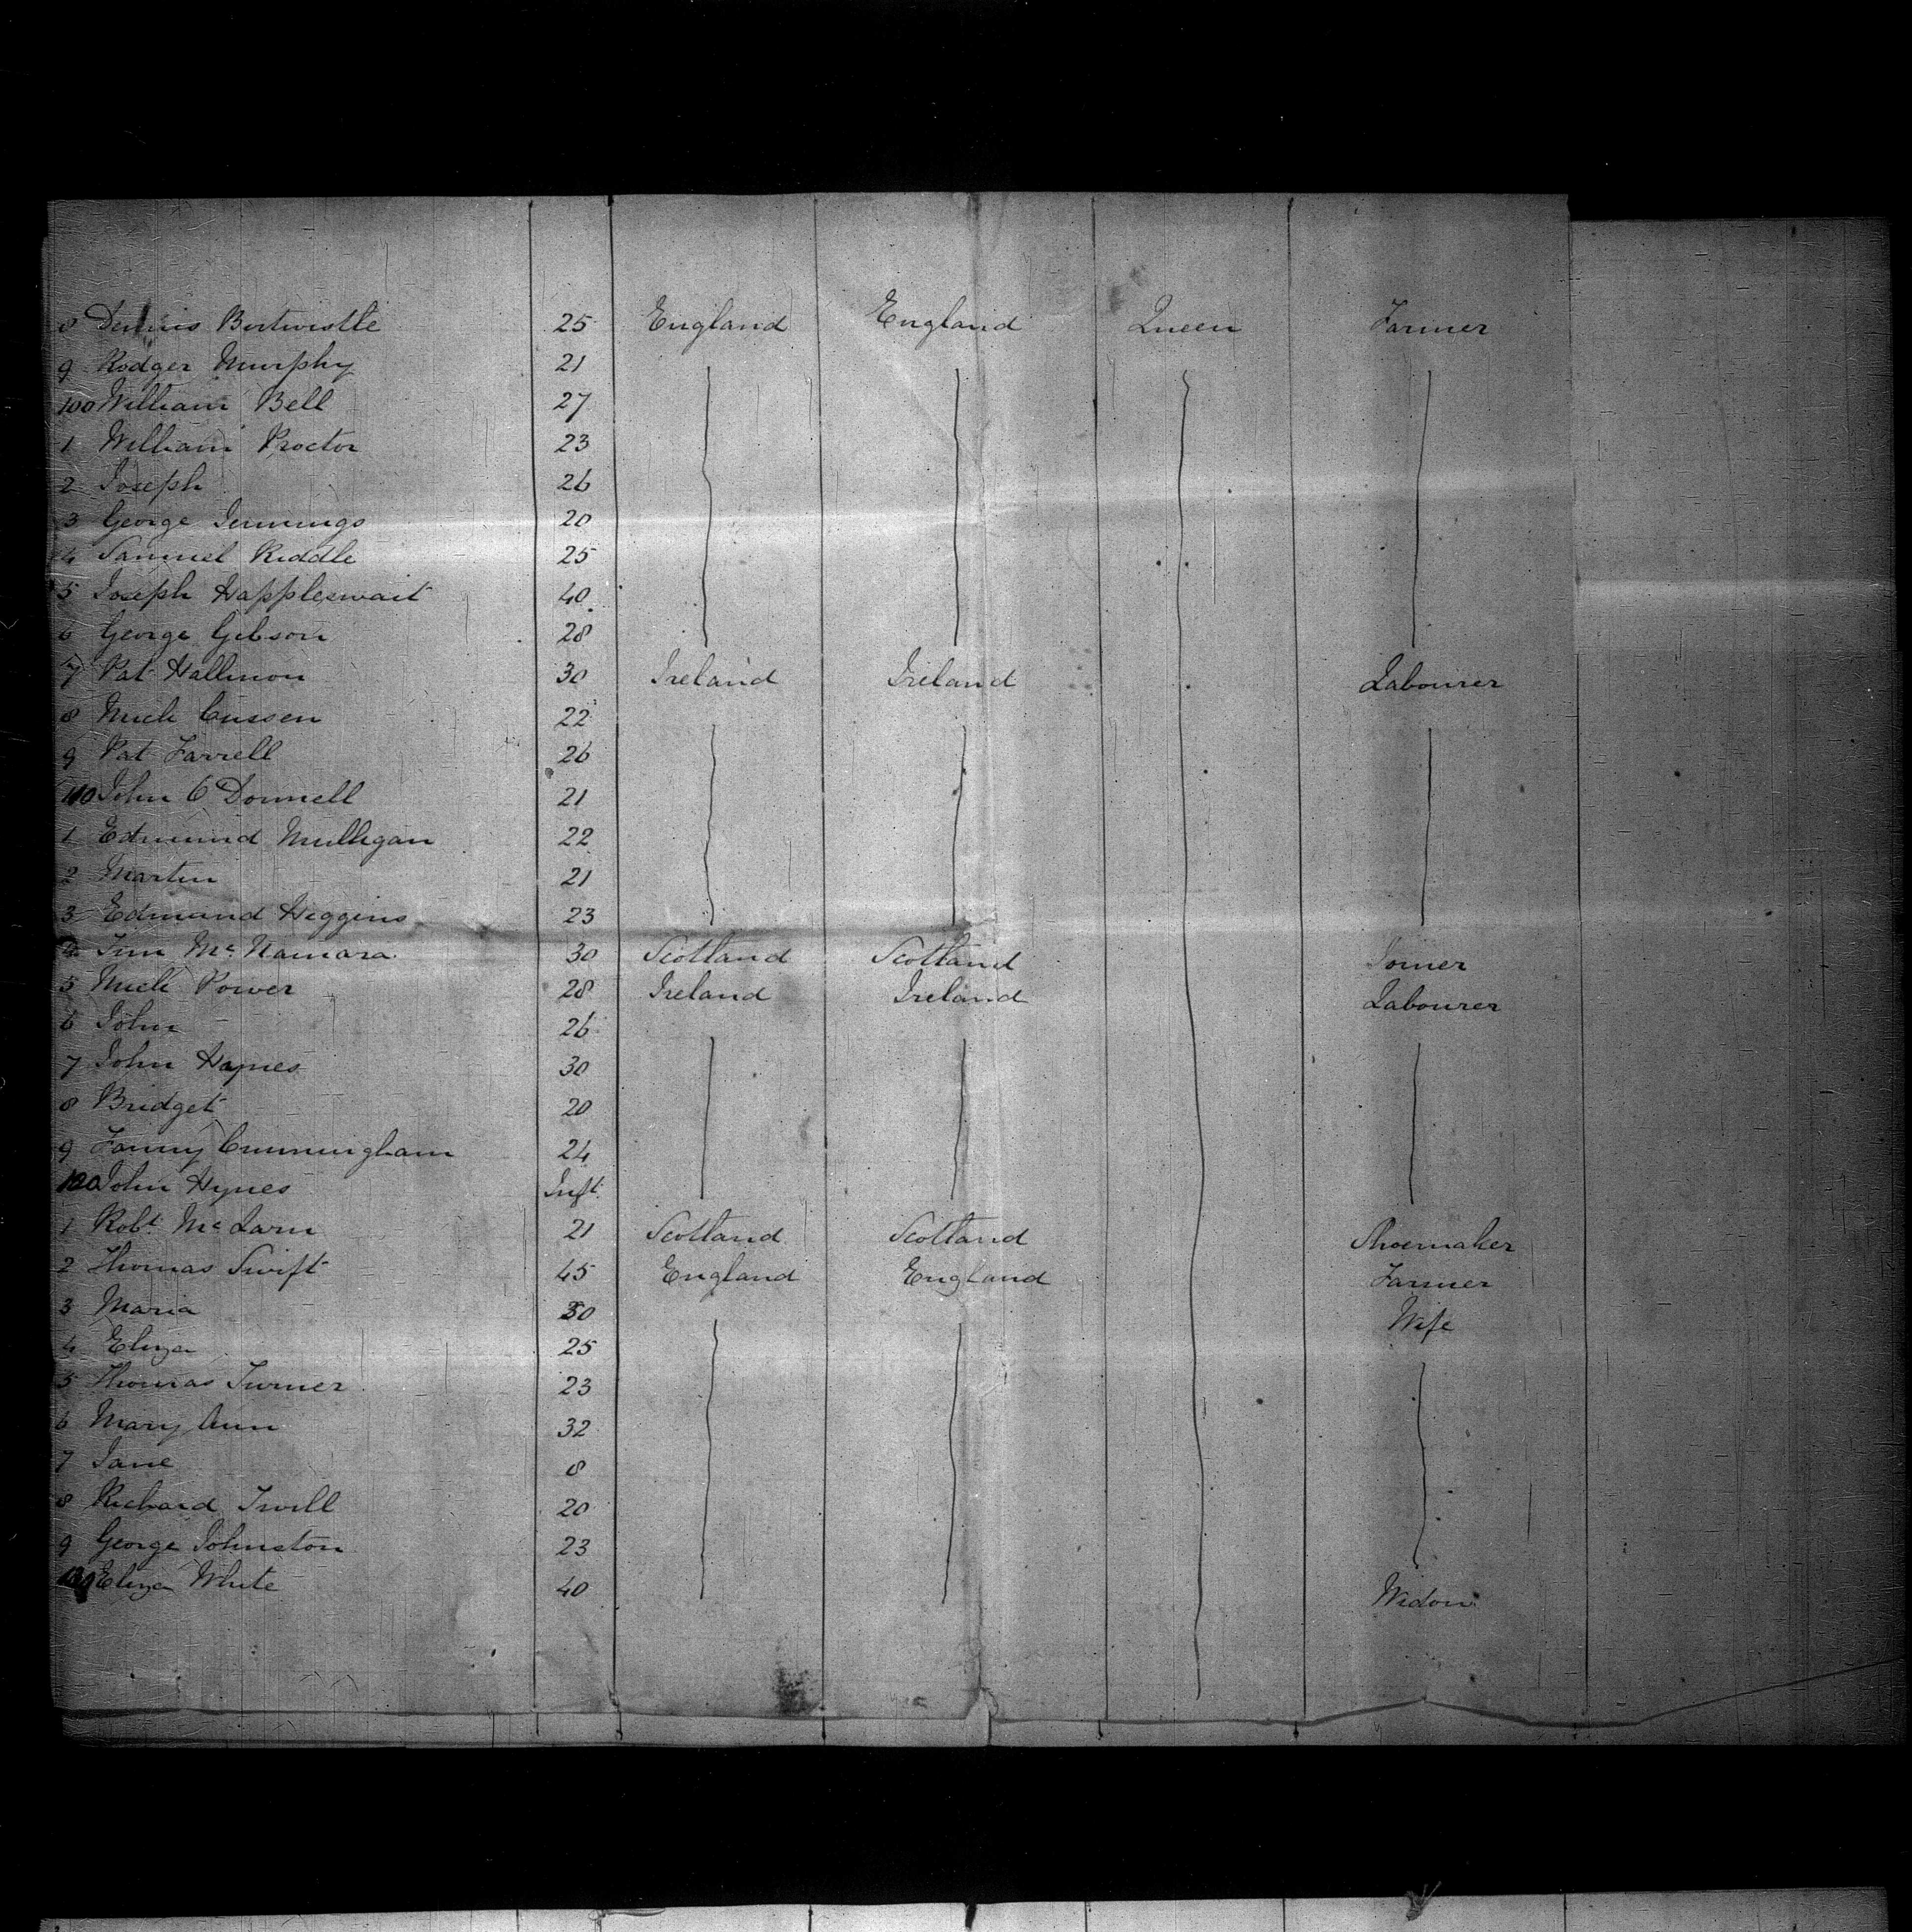 8 Dennis Birtwistle 25 England England Queen Farmer
9 Rodger Murphy 21
100 William Bell 27
1 William Proctor 23
2 Joseph 26
3 George Jennings 20
4 Samuel Riddle 25
5 Joseph Happleswait 40
6 George Gibson 28
7 Pat Hallinon 30 Ireland Ireland Labourer
8 Mich Cussen 22
9 Pat Farrell 26
110 John O Donnell 21
1 Edmund Mulligan 22
2 Martin 21
3 Edmund Higgins 23
4 Tim Mc Namara 30 Scotland Scotland Joiner
5 Mich Power 28 Ireland Ireland Labourer
6 John 26
7 John Haynes 30
8 Bridget 20
9 Fanny Cunningham 24
120 John Hynes Inft
1 Robt Mc Larn 21 Scotland Scotland Shoemaker
2 Thomas Swift 45 England England Farmer
3 Maria 30 Wife
4 Eliza 25
5 Thomas Turner 23
6 Mary Ann 32
7 Jane 8
8 Richard 20
9 George Johnston 23
130 Eliza White 40 Widow